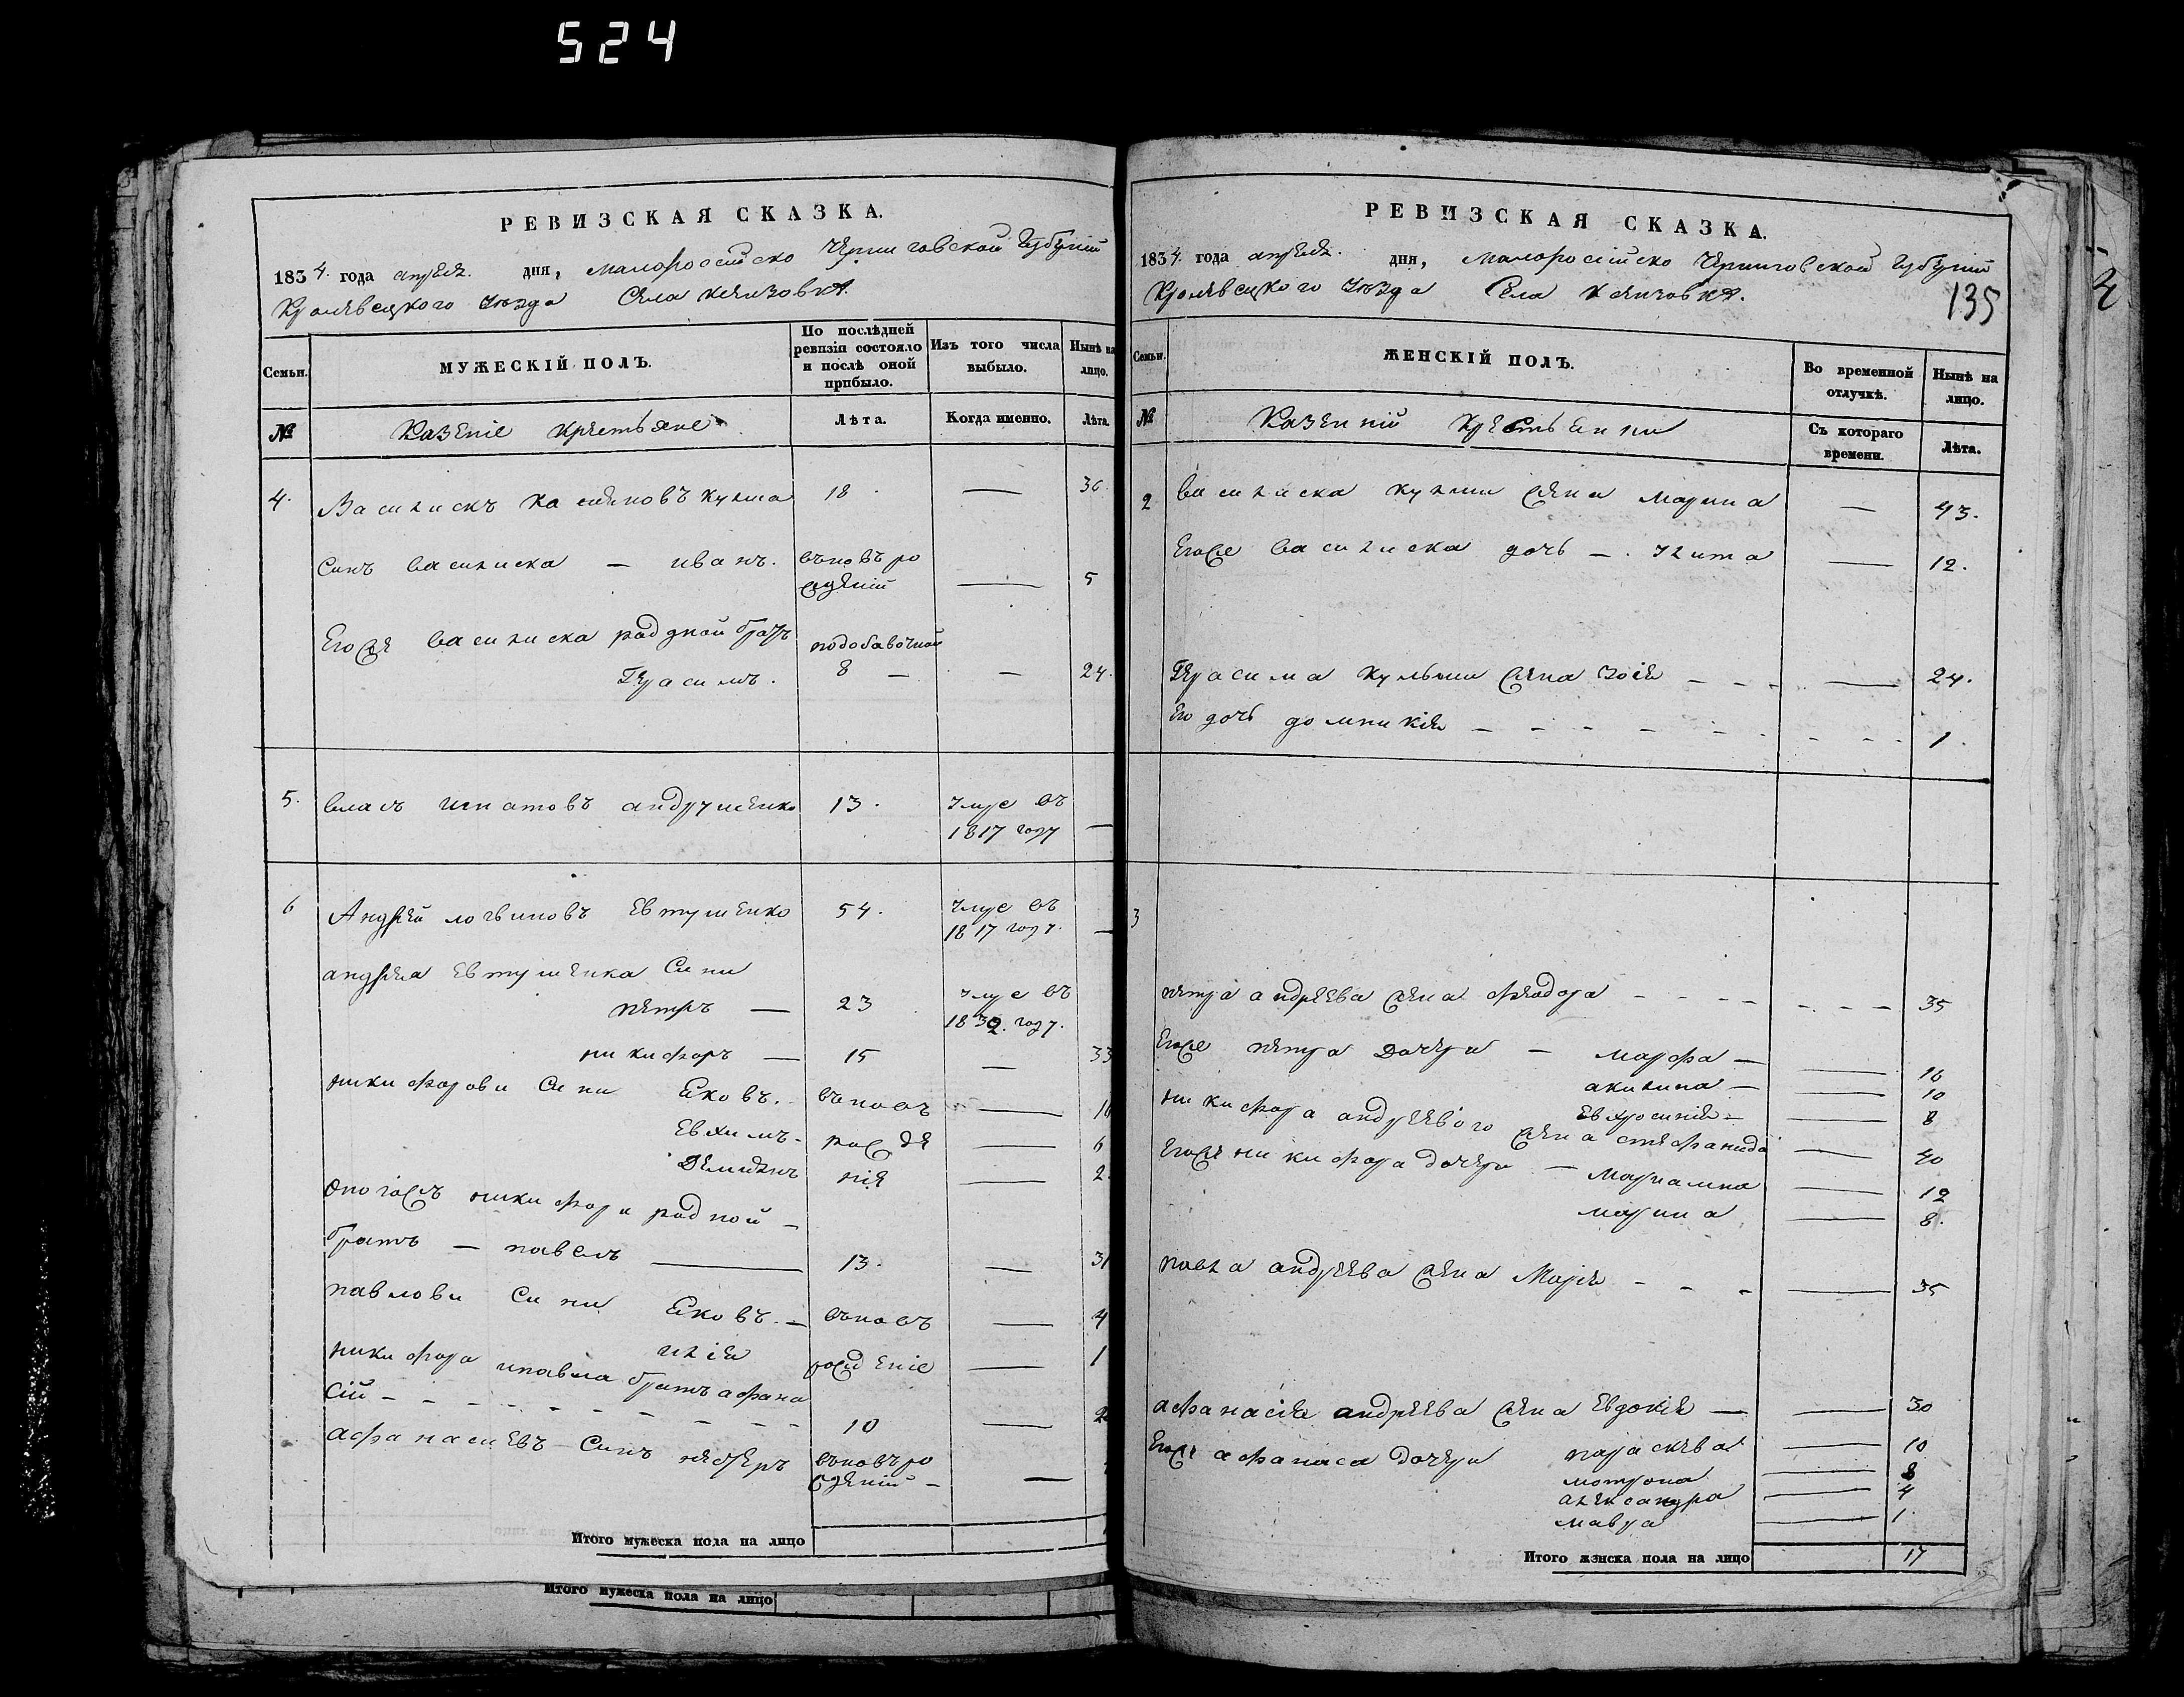 524
РЕВИЗСКАЯ СКАЗКА.
1834. года апреля. дня, малоросейско Черниговской Губерний
Кролевецкого Уезда Села
Семьи.
МУЖЕСКІЙ ПОЛЪ.
По послѣдней ревизіи состояло и послѣ оной прибыло.
Изъ того числа выбыло.
Нынѣ на лицо.
№
Казеніе крестьяне
Лѣта.
Когда именно.
Лѣта.
4. Василискъ Касіяновъ Кулша 18 — 36.
Синъ василиска — иванъ. въновъ ро
жденій — 5
Егоже василиска роднои братъ подобавочной
Герасимъ. 8 — — 24.
5. власъ игнатовъ андрушенко 13. умре въ
1817 году —
6 Андрей логвиновъ Евтушенко 54. умре въ
1817 году. —
андрея Евтушенка Сини
петръ — 23 умре въ
1832. году.
никифоръ — 15 — 33
никифорови Сини Яковъ. въновъ —
Евхимъ. рожде — 6
Демьянъ нія — 2.
оногожъ никифора родной —
братъ — павелъ — 13. — 31
павлови Сини Яковъ. — въновъ — 4
илія рожденіе — 1
никифора ипавла братъ афана
сій — — — 10 —
афанасиевъ Синъ нестеръ въновъ ро
жденій — —
Итого мужеска пола на лицо
Итого мужеска пола на лицо
РЕВИЗСКАЯ СКАЗКА.
1834. года апреля. дня, малоросійско Черниговской Губерний
Кролевецкого Уезда Села
135
Семьи.
ЖЕНСКІЙ ПОЛЪ.
Во временной отлучкѣ.
Нынѣ на лицо.
№
Казенній Крестьянки
Съ котораго времени.
Лѣта.
2 василиска кулши жена Марина — 43.
Егоже василиска дочь — улита — 12.
Герасима Кульши жена Зоія — — — 24.
Его дочь домникія — — — 1.
3
петра андреева жена феодора — — — 35
Егоже петра Дочери — марфа — — 16
акилина — — 10
Евхросинія — — 8
никифора андреевіого жена стефанида — 40
Егоже никифора дочери — Мариамна — 12
марина — 8.
павла андреева жена Марія — — — 35
афанасія андреева жена Евдокія — — 30
Егоже афанаса Дочери параскева — 10
мотрона — 8
александра — 4
мавра — 1.
Итого женска пола на лицо 17